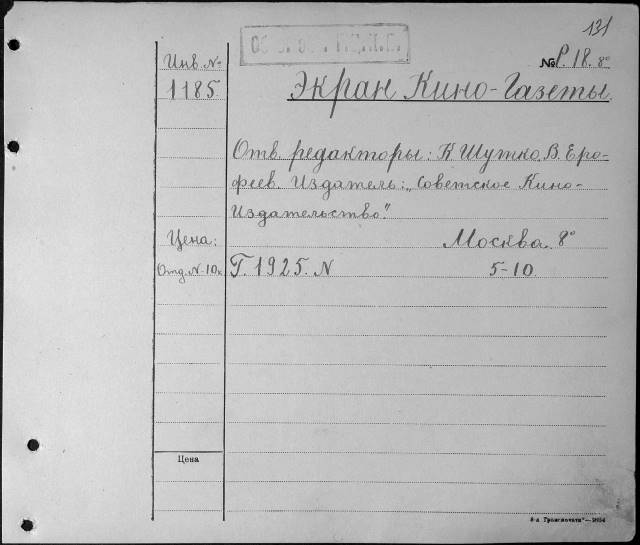 131
Инв. №
№ Р. 18. 8°
1185
Экран Кино-Газеты
Отв. редакторы: К. Шутко, В. Еро-
феев. Издатель: „Советское Кино-
Издательство".
Цена:
Москва. 8°
Отд. N-10к
Г. 1925. N
5-10
Цена